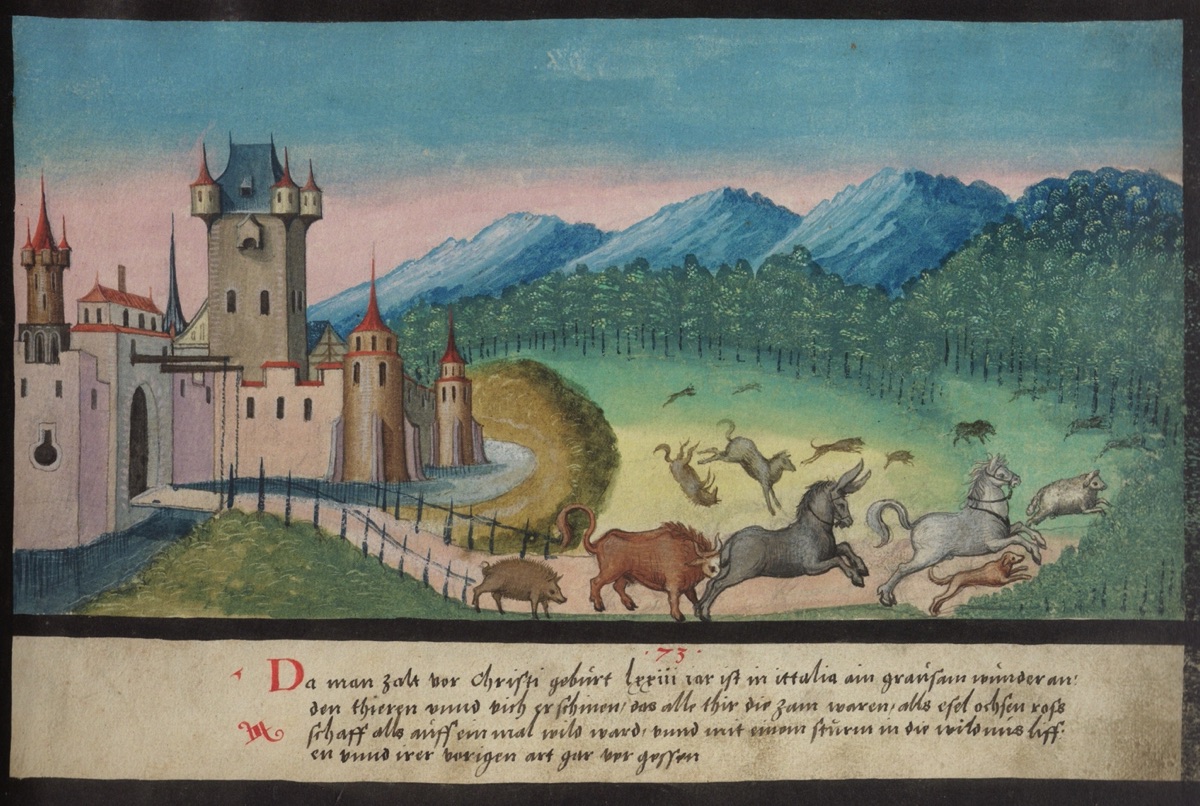 · 73 ·
Da man zalt vor Christi gebürt lxxiii iar ist in ittalia ain graüsam wünder an:
den thieren vnnd vich erschinen/ das alle thir die zam waren/ alls esel ochsen ross
schaff alls aüff ein mal wild ward/ vnnd mit einem stürm in die wildnüs liff:
en vnnd irer vorigen art gar vergessen